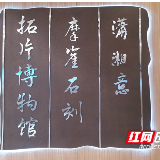 潇湘意
摩崖石刻
拓片博物馆
红网